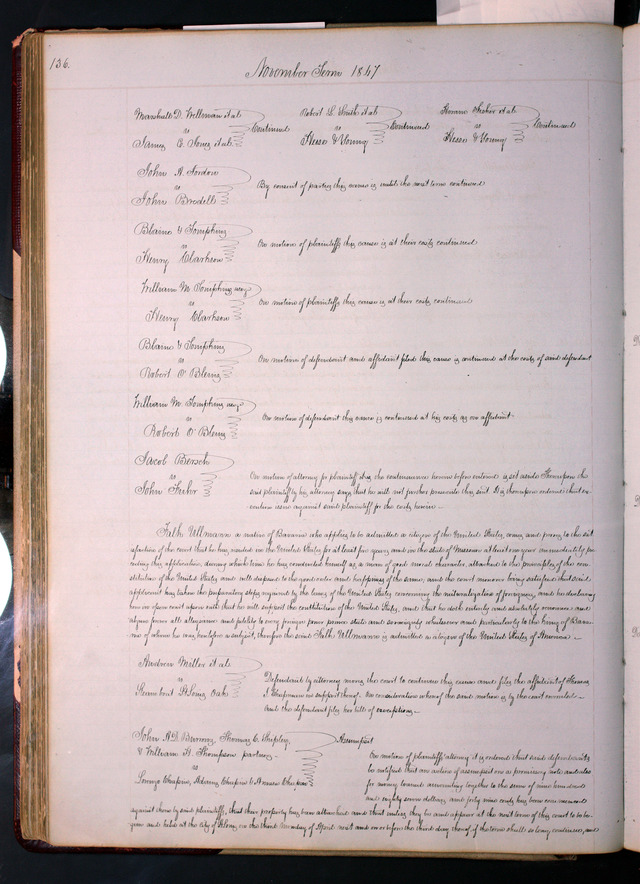 136.
November Term 1847
Marshall D. Wellman et al
vs Continued
James C. Jones et al
Robert B. Smith et al
vs Continued
Hesse & Young
et al
vs Continued
Hesse & Young
John A. Gordon
vs By consent of parties this cause is until the next term continued
John Bredell
Blain & Tompkins
vs On motion of plaintiffs this cause is at their costs continued
Henry Clarkson
William M. Tompkins
vs On motion of plaintiffs this cause is at their costs continued
Henry Clarkson
Blain & Tompkins
vs On motion of defendant and affidavit filed this cause is continued at the costs of said defendant
Robert O'Blenis
William M. Tompkins
vs On motion of defendant this cause is continued at his costs as on affidavit
Robert O'Blenis
Jacob Bersch
vs On motion of attorney for plaintiff the continuance herein before entered is set aside Thereupon the
John said plaintiff by his attorney says that he will not further prosecute this suit. It is thereupon ordered that ex-
ecution issue against said plaintiff for the costs herein.
Ullmann a native of Bavaria who applies to be admitted a citizen of the United States, comes and proves to the sat-
isfaction of the court that he has resided in the United States for at least five years and in the state of Missouri at least one year immediately pre-
ceding this application, during which time he has conducted himself as a man of good moral character, attached to the principles of the con-
stitution of the United States and well disposed to the good order and happiness of the same, and the court moreover being satisfied that said
applicant has taken the preparatory steps required by the laws of the United States concerning the naturalization of foreigners, and he declaring
here in open court upon oath that he will support the constitution of the United States, and that he doth entirely and absolutely renounce and
abjure forever all allegiance and fidelity to every foreign power prince state and sovereignty whatsoever and particularly to the king of Bava-
ria of whom he was heretofore a subject, therefore the said Ullmann is admitted a citizen of the United States of America.
Andrew Miller et al
vs Defendant by attorney moves the court to continue this cause and files the affidavit of Thomas
Steamboat Oak Chapman in support thereof. On consideration whereof the said motion is by the court overruled
And the defendant files her bill of exceptions.
John A. D. Burrows, Thomas C. Shipley, Assumpsit
& William H. Thompson partners
vs On motion of plaintiffs attorney it is ordered that said defendants
Lorenzo Chapin, Chapin & Chapin be notified that an action of assumpsit on a promissory note and also
for money loaned amounting together to the sum of nine hundred
and eighty seven dollars and forty nine cents has been commenced
against them by said plaintiffs, that their property has been attached and that unless they be and appear at the next term of this court to be be-
gun and held at the city of St Louis, on the third Monday of April next and on or before the third day thereof if the term shall so long continue, and